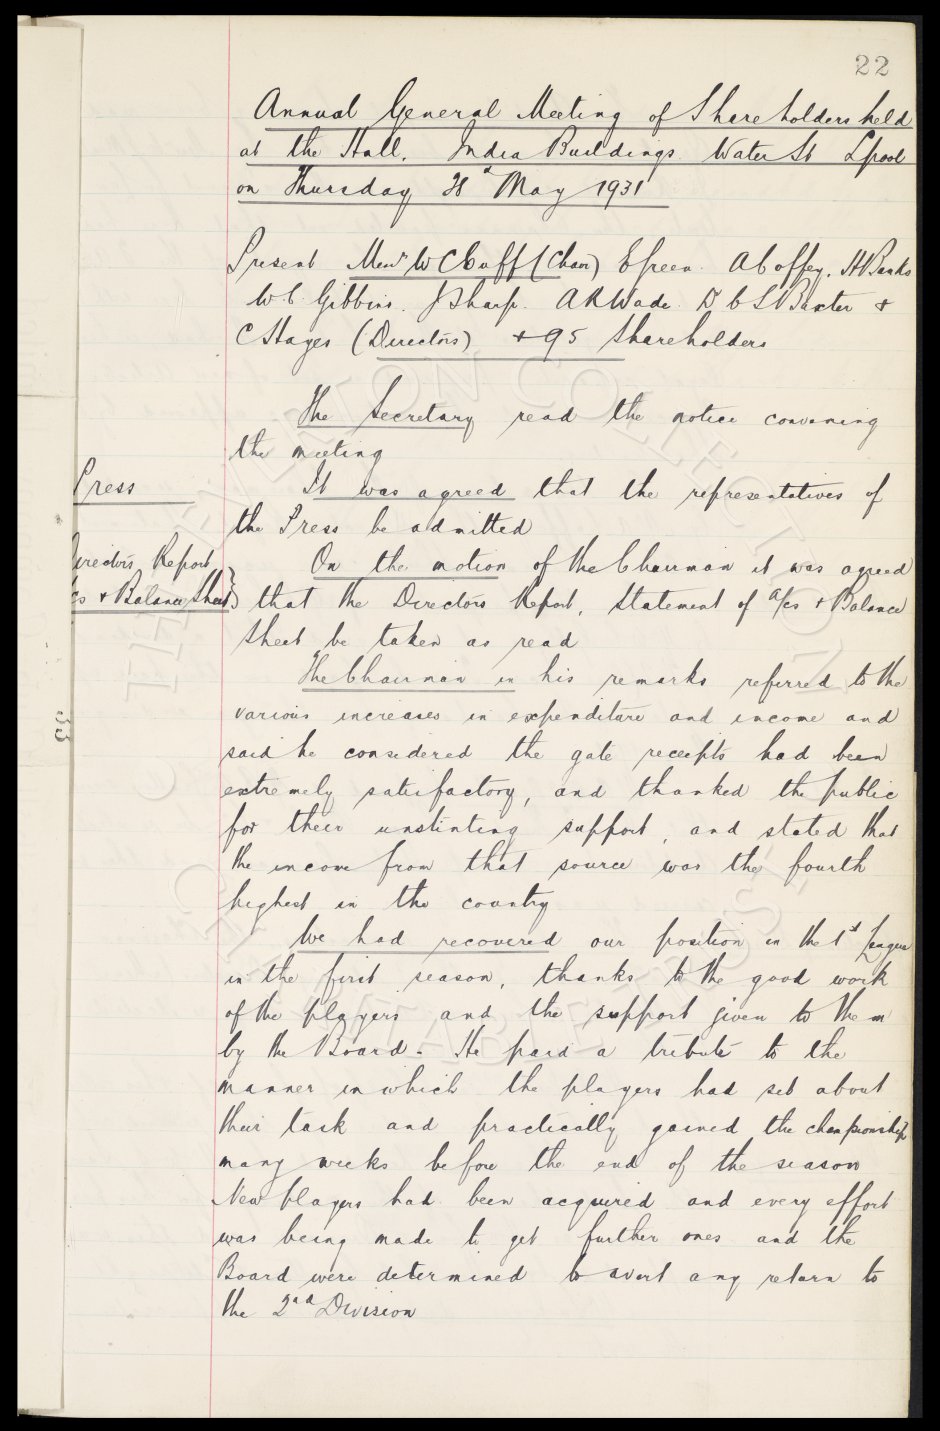 22
Annual General Meeting of Shareholders held
at the Hall. India Buildings Water St Lpool
on Thursday May 1931
Present Messrs W C Cuff (Chair) E Green. A Coffey. H Banks
W. C. Gibbins. J Sharp. A R Wade. D C S Baxter &
C S Hayes (Directors) + 95 Shareholders
The Secretary read the notice convening
the meeting
Press
It was agreed that the representatives of
the Press be admitted
irectors Report
cs & Balance Sheet
On the motion of the Chairman it was agreed
that the Directors Report, Statement of a/cs & Balance
Sheet be taken as read
The Chairman in his remarks referred to the
various increases in expenditure and income and
said he considered the gate receipts had been
extremely satisfactory, and thanked the public
for their unstinting support, and stated that
the income from that source was the fourth
highest in the country
We had recovered our position in the 1st League
in the first season, thanks to the good work
of the players and the support given to them
by the Board. He paid a tribute to the
manner in which the players had set about
their task and practically gained the championship
many weeks before the end of the season
New players had been acquired and every effort
was being made to get further ones and the
Board were determined to avert any return to
the 2nd Division
33
EVERTON COLLECTION
CHARITABLE TRUST